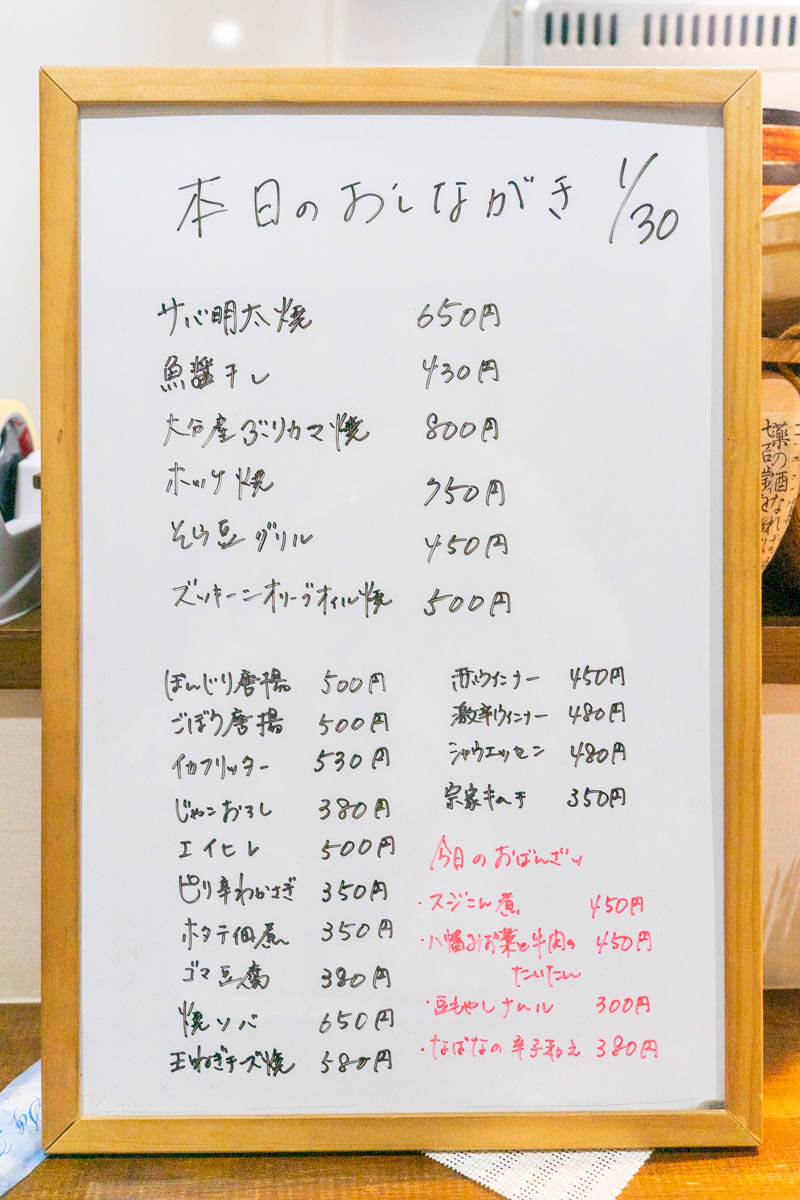 本日のおしながき 1/30
サバ明太焼 650円
魚醤干し 430円
大分産ぶりカマ焼 800円
ホッケ焼 750円
そら豆グリル 450円
ズッキーニオリーブオイル焼 500円
ぼんじり唐揚 500円
ごぼう唐揚 500円
イカフリッター 530円
じゃこおろし 380円
エイヒレ 500円
ピリ辛わかさぎ 350円
ホタテ佃煮 350円
ゴマ豆腐 380円
焼ソバ 650円
玉ねぎチーズ焼 580円
赤ウインナー 450円
激辛ウインナー 480円
シャウエッセン 480円
宗家キムチ 350円
今日のおばんざい
・スジこん煮 450円
・八幡みお菜と牛肉の 450円
たいたん
・豆もやしナムル 300円
・なばなの辛子和え 380円
薬の酒なれば
七百歳を